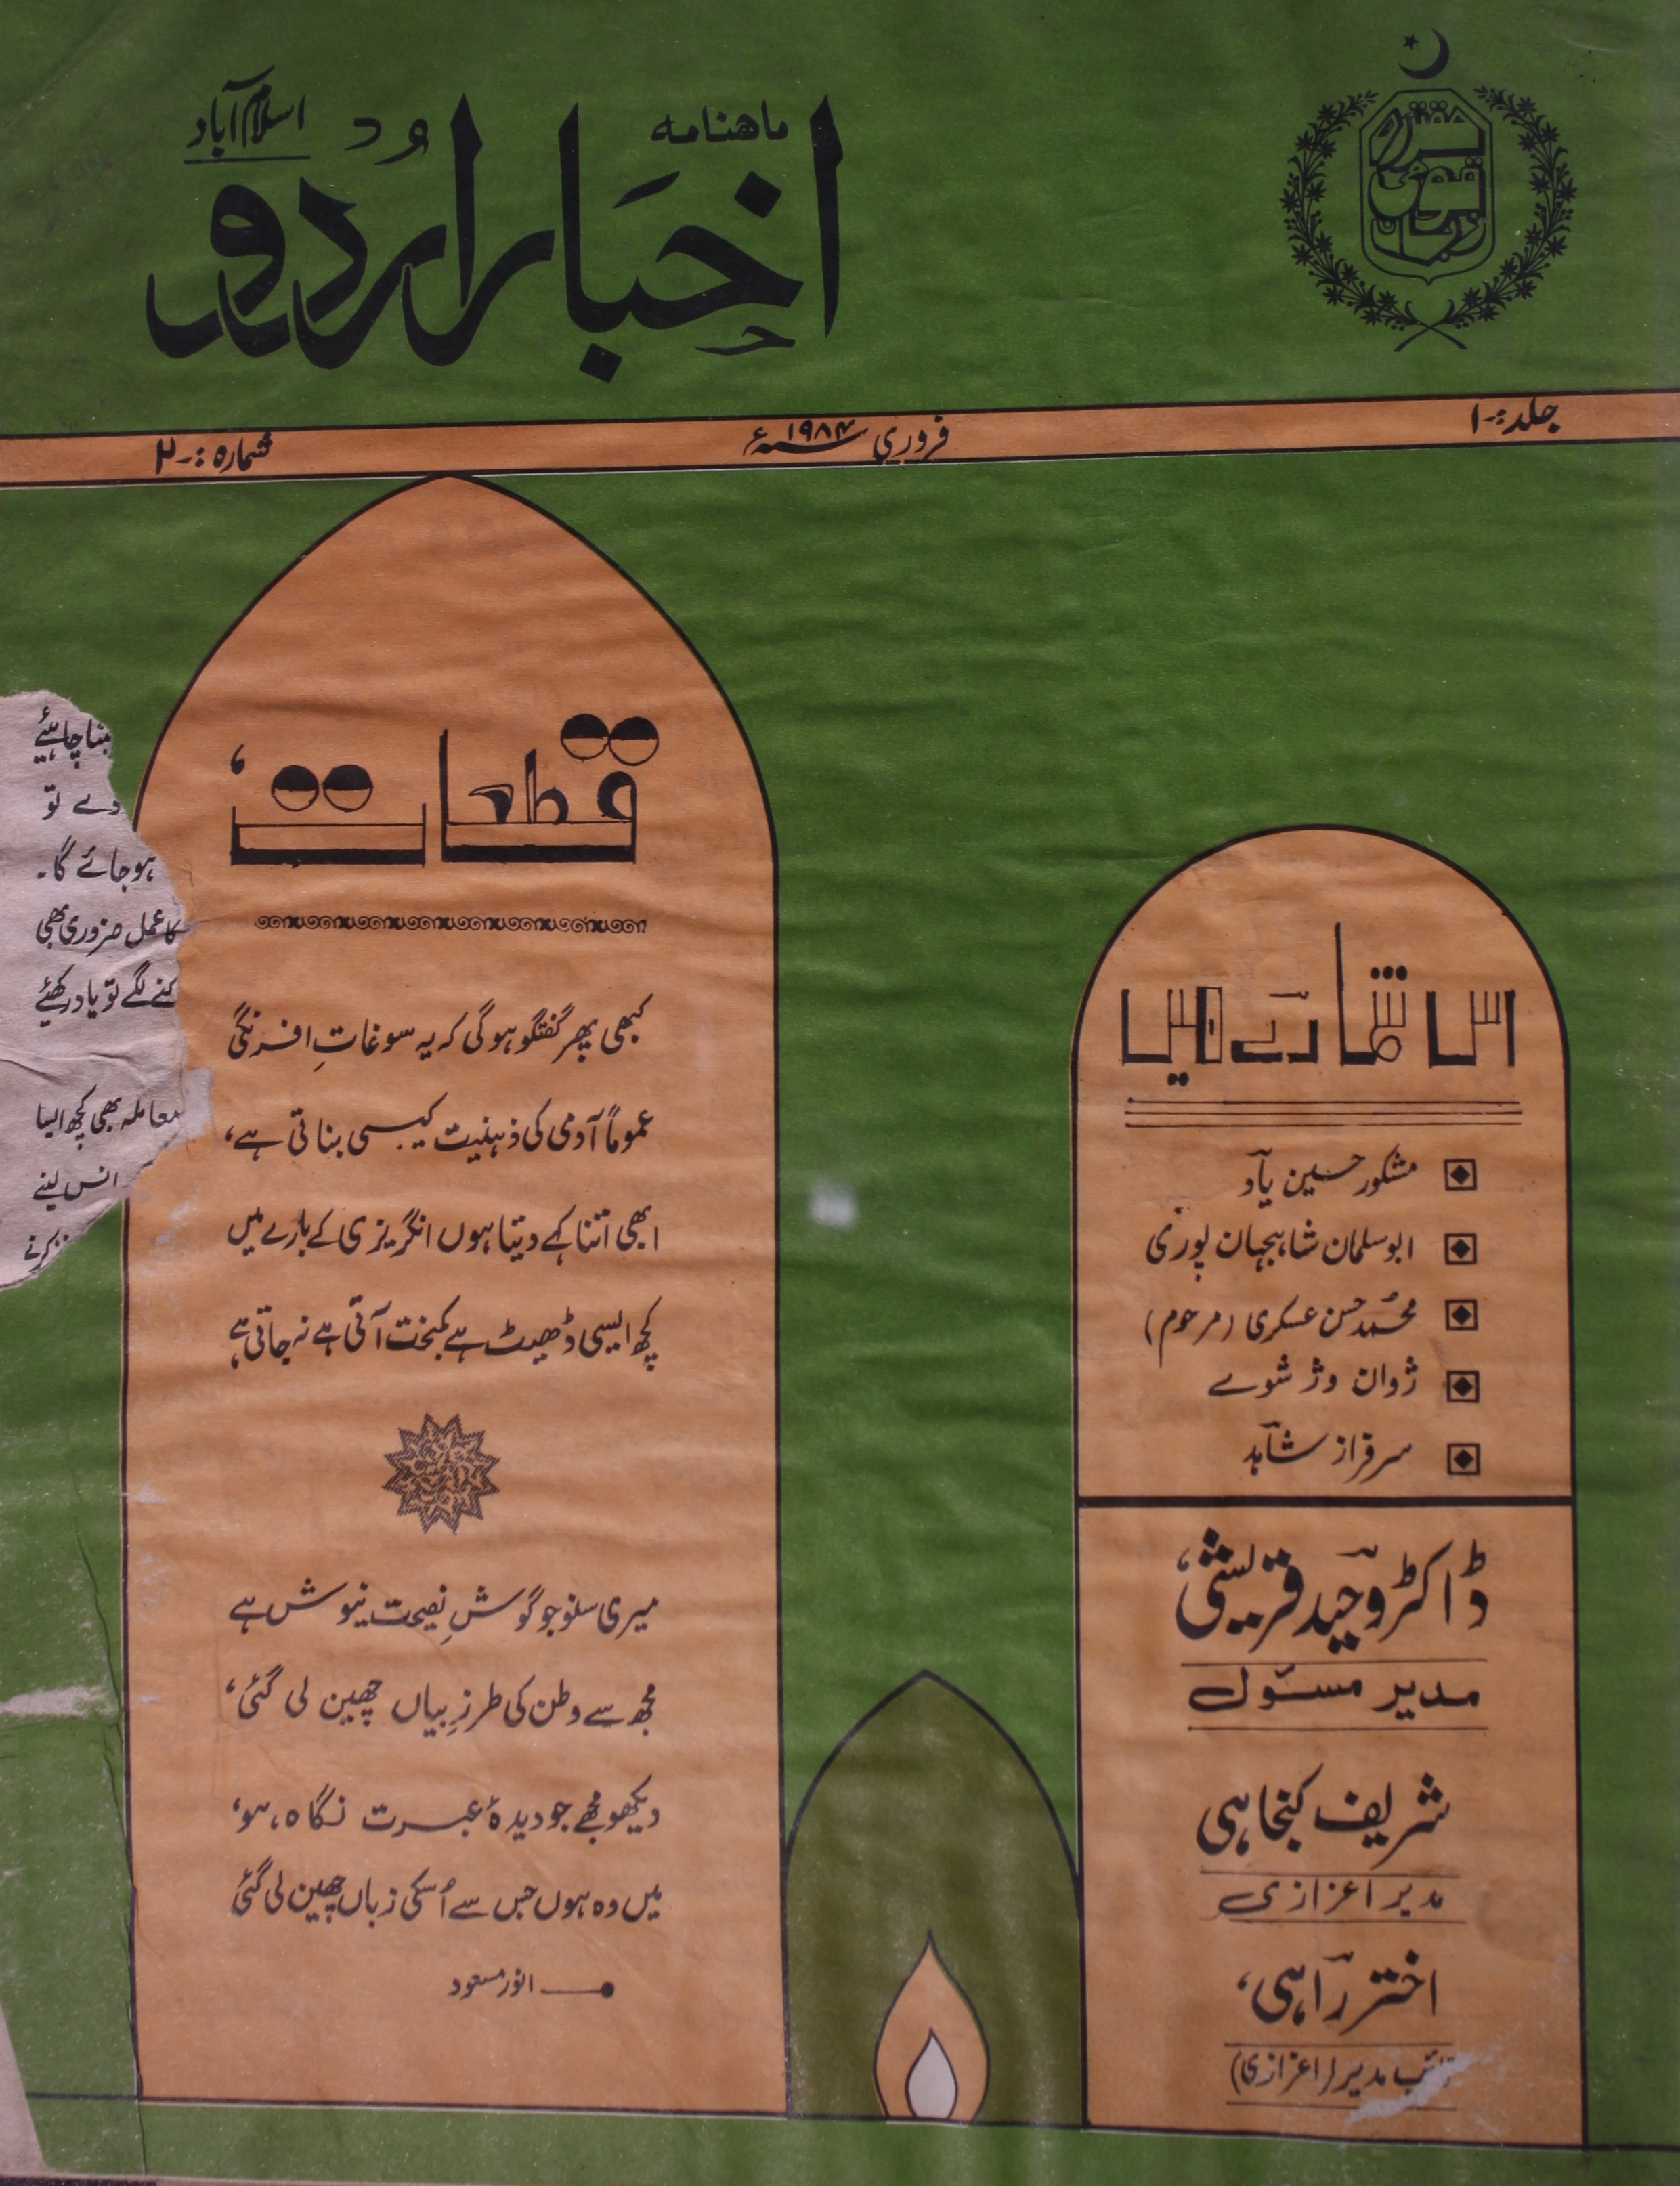 ماهنامه
اخبار اردو
اسلام آباد
مقتدرہ
قومی
زبان
جلد:۔۱
فروری ۱۹۸۴ء
شمارہ:۔۲
اس شمارے میں
مشکور حسین یاد
ابوسلمان شاہجہان پوری
محمد حسن عسکری (مرحوم)
ژوان وژ شوے
سرفراز شاہد
ڈاکٹر وحید قریشی،
مدیر مسئول
شریف کنجاہی
مدیر اعزازی
اختر راہی،
نائب مدیر (اعزازی)
قطعات،
کبھی پھر گفتگو ہوگی کہ یہ سوغاتِ افرنگی
عموماً آدمی کی ذہنیت کیسی بناتی ہے،
ابھی اتنا کہے دیتا ہوں انگریزی کے بارے میں
کچھ ایسی ڈھیٹ ہے کمبخت آتی ہے نہ جاتی ہے
میری سنو جو گوشِ نصیحت نیوش ہے
مجھ سے وطن کی طرزِ بیاں چھین لی گئی،
دیکھو مجھے جو دیدۂ عبرت نگاہ ہو،
میں وہ ہوں جس سے اُسکی زباں چھین لی گئی
انور مسعود
بننا چاہئیے
دے تو
ہو جائے گا۔
کا عمل ضروری بھی
لگے تو یاد رکھئیے
معاملہ بھی کچھ ایسا
سانس لینے
کرنے